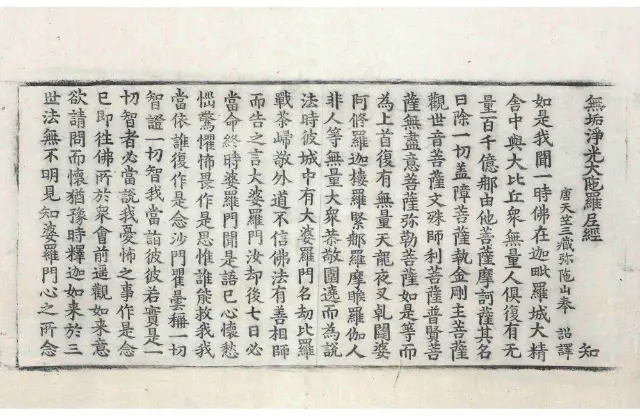 無垢淨光大陁羅尼經 知
唐天竺三藏弥陁山奉 詔譯
如是我聞一時佛在迦毗羅城大精
舍中與大比丘衆無量人俱復有无
量百千億那由他菩薩摩訶薩其名
曰除一切盖障菩薩執金剛主菩薩
觀世音菩薩文殊師利菩薩普賢菩
薩無盡意菩薩弥勒菩薩如是等而
為上首復有無量天龍夜叉乹闥婆
阿修羅迦樓羅緊那羅摩睺羅伽人
非人等無量大衆恭敬圍遶而為說
法時彼城中有大婆羅門名劫比羅
戰荼歸敬外道不信佛法有善相師
而告之言大婆羅門汝却後七日必
當命終時婆羅門聞是語已心懷愁
惱驚懼怖畏作是思惟誰能救我我
當依誰復作是念沙門瞿曇稱一切
智證一切智我當詣彼彼若實是一
切智者必當說我憂怖之事作是念
已即往佛所於衆會前遥觀如來意
欲請問而懷猶豫時釋迦如來於三
世法無不明見知婆羅門心之所念